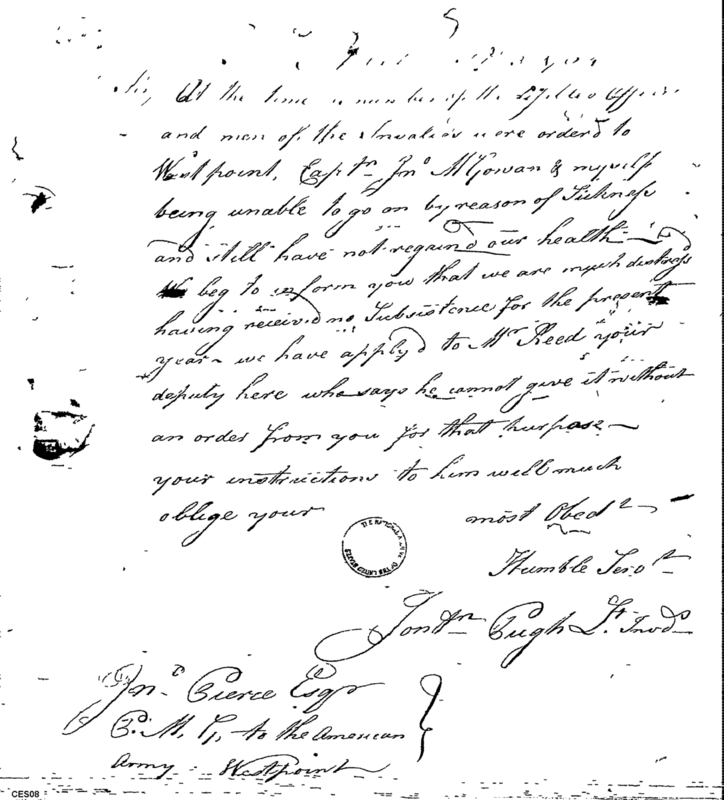 Sir, At the time a number of the Officers
and men of the Invalids were order'd to
Westpoint, Captn Jno McGowan & myself
being unable to go on by reason of Sickness
and still have not regaind our health
We beg to inform you that we are much distress'd
having received no Subsistence for the present
year - we have apply'd to Mr Reed your
deputy here who says he cannot give it without
an order from you for that purpose -
your instructions to him will much
oblige your most Obedt
Humble Servt
Jonthn Pugh Lt Invds
Jno Pierce Esqr
P. M. G. to the American
Army Westpoint
CES08